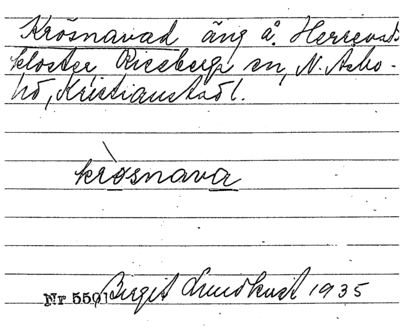 Krösnavad äng å. Herrevads
kloster Riseberga sn, N. Asbo-
hd, Kristianstad l.
krösnava
Nr 5501 Birgit Lundkvist 1935